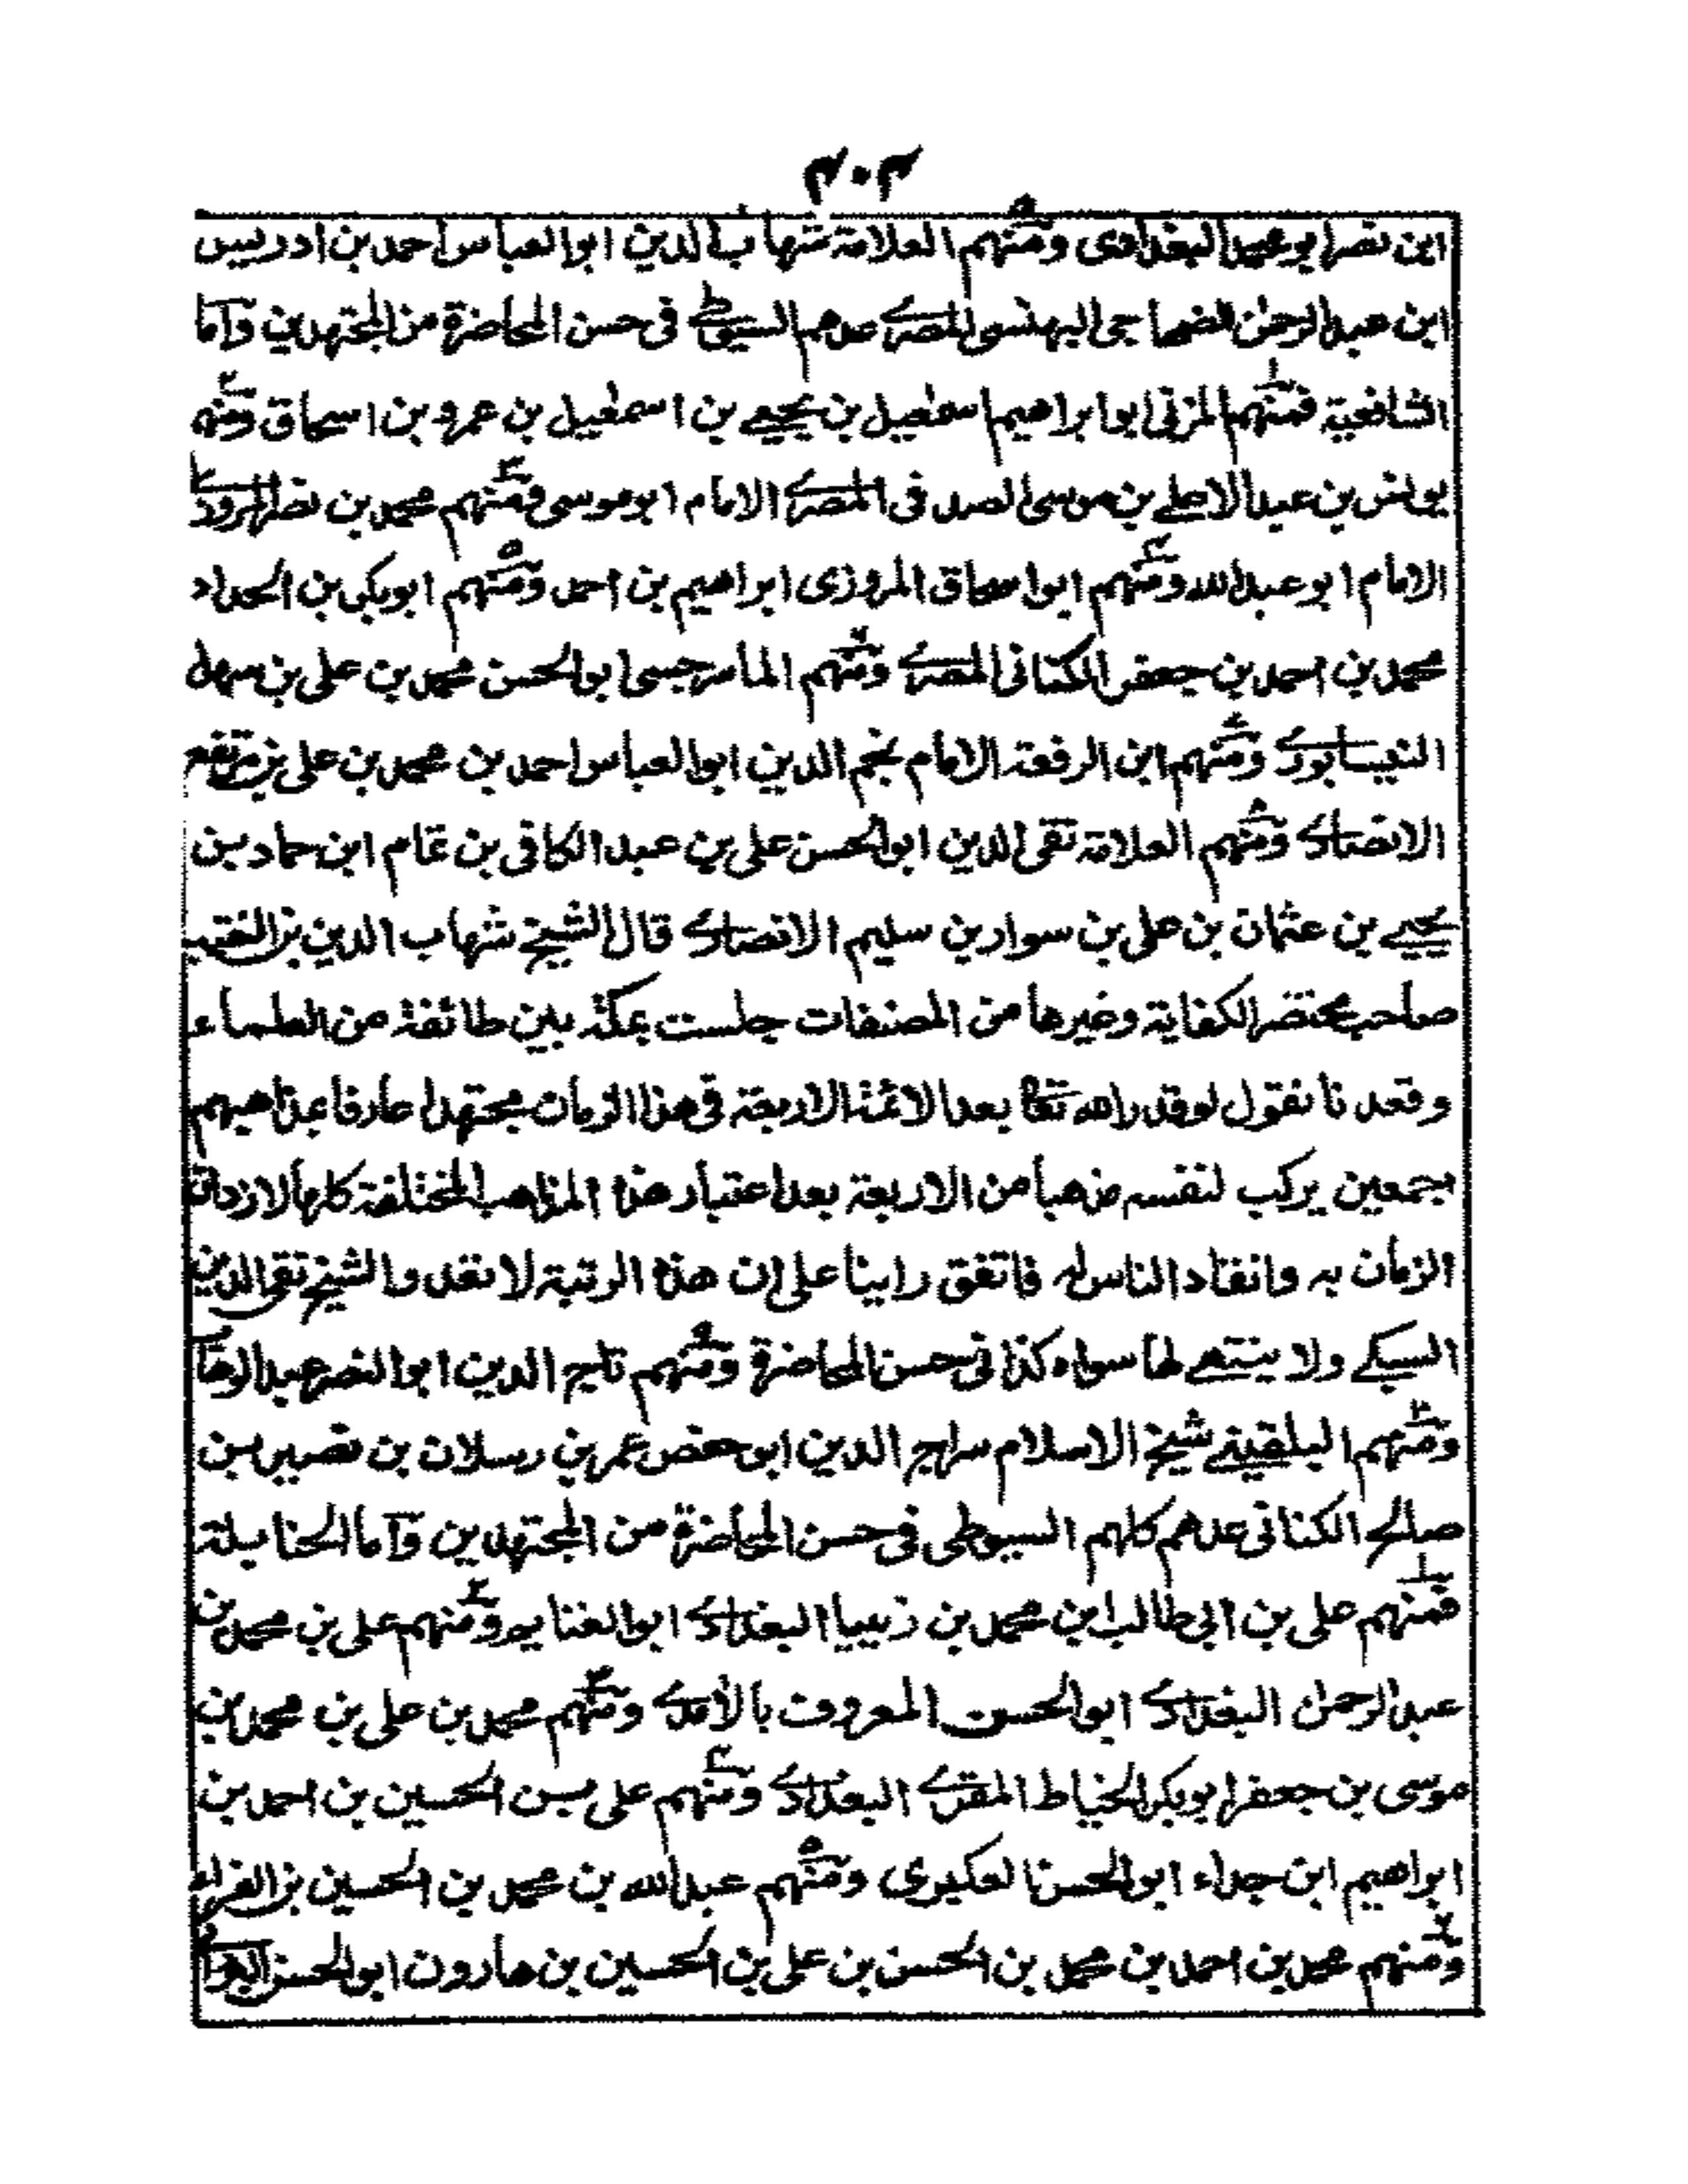 ٣٠٣
ابن نصر ابو محمد البغدادى ومنهم العلامة شهاب الدين ابو العباس احمد بن ادريس
ابن عبد الرحمن الصنهاجى البهنسى المصرى عدهم السيوطى فى حسن المحاضرة من المجتهدين واما
الشافعية فمنهم المزنى ابو ابراهيم اسمعيل بن يحيى بن اسمعيل بن عمرو بن اسحاق ومنهم
يونس بن عبد الاعلى بن موسى الصدفى المصرى الامام ابو موسى ومنهم محمد بن نصر المروزى
الامام ابو عبد الله ومنهم ابو اسحاق المروزى ابراهيم بن احمد ومنهم ابو بكر بن الحداد
محمد بن احمد بن جعفر الكنانى المصرى ومنهم الماسرجسى ابو الحسن محمد بن على بن سهل
النيسابورى ومنهم ابن الرفعة الامام نجم الدين ابو العباس احمد بن محمد بن على بن مرتفع
الانصارى ومنهم العلامة تقى الدين ابو الحسن على بن عبد الكافى بن تمام ابن حماد بن
يحيى بن عثمان بن على بن سوار بن سليم الانصارى قال الشيخ شهاب الدين بن النقيب
صاحب مختصر الكفاية وغيرها من المصنفات جلست بمكة بين طائفة من العلماء
وقعدنا نقول لو قدر الله تعالى بعد الائمة الاربعة فى هذا الزمان مجتهدا عارفا بمذاهبهم
اجمعين يركب لنفسه مذهبا من الاربعة بعد اعتبار هذه المذاهب المختلفة كلها لازدان
الزمان به وانقاد الناس له فاتفق راينا على ان هذه الرتبة لا تعدو الشيخ تقى الدين
السبكى ولا ينتهى لها سواه كذا فى حسن المحاضرة ومنهم تاج الدين ابو النصر عبد الوهاب
ومنهم البلقينى شيخ الاسلام سراج الدين ابو حفص عمر بن رسلان بن نصير بن
صالح الكنانى عدهم كلهم السيوطى فى حسن المحاضرة من المجتهدين واما الحنابلة
فمنهم على بن ابى طالب ابن محمد بن زبيبا البغدادى ابو الغنايم ومنهم على بن محمد بن
عبد الرحمن البغدادى ابو الحسن المعروف بالآمدى ومنهم محمد بن على بن محمد بن
موسى بن جعفر ابو بكر الخياط المقرى البغدادى ومنهم على بن الحسين بن احمد بن
ابراهيم ابن جداء ابو الحسن العكبرى ومنهم عبد الله بن محمد بن الحسين بن الفراء
ومنهم محمد بن احمد بن محمد بن الحسن بن على بن الحسين بن هارون ابو الحسن